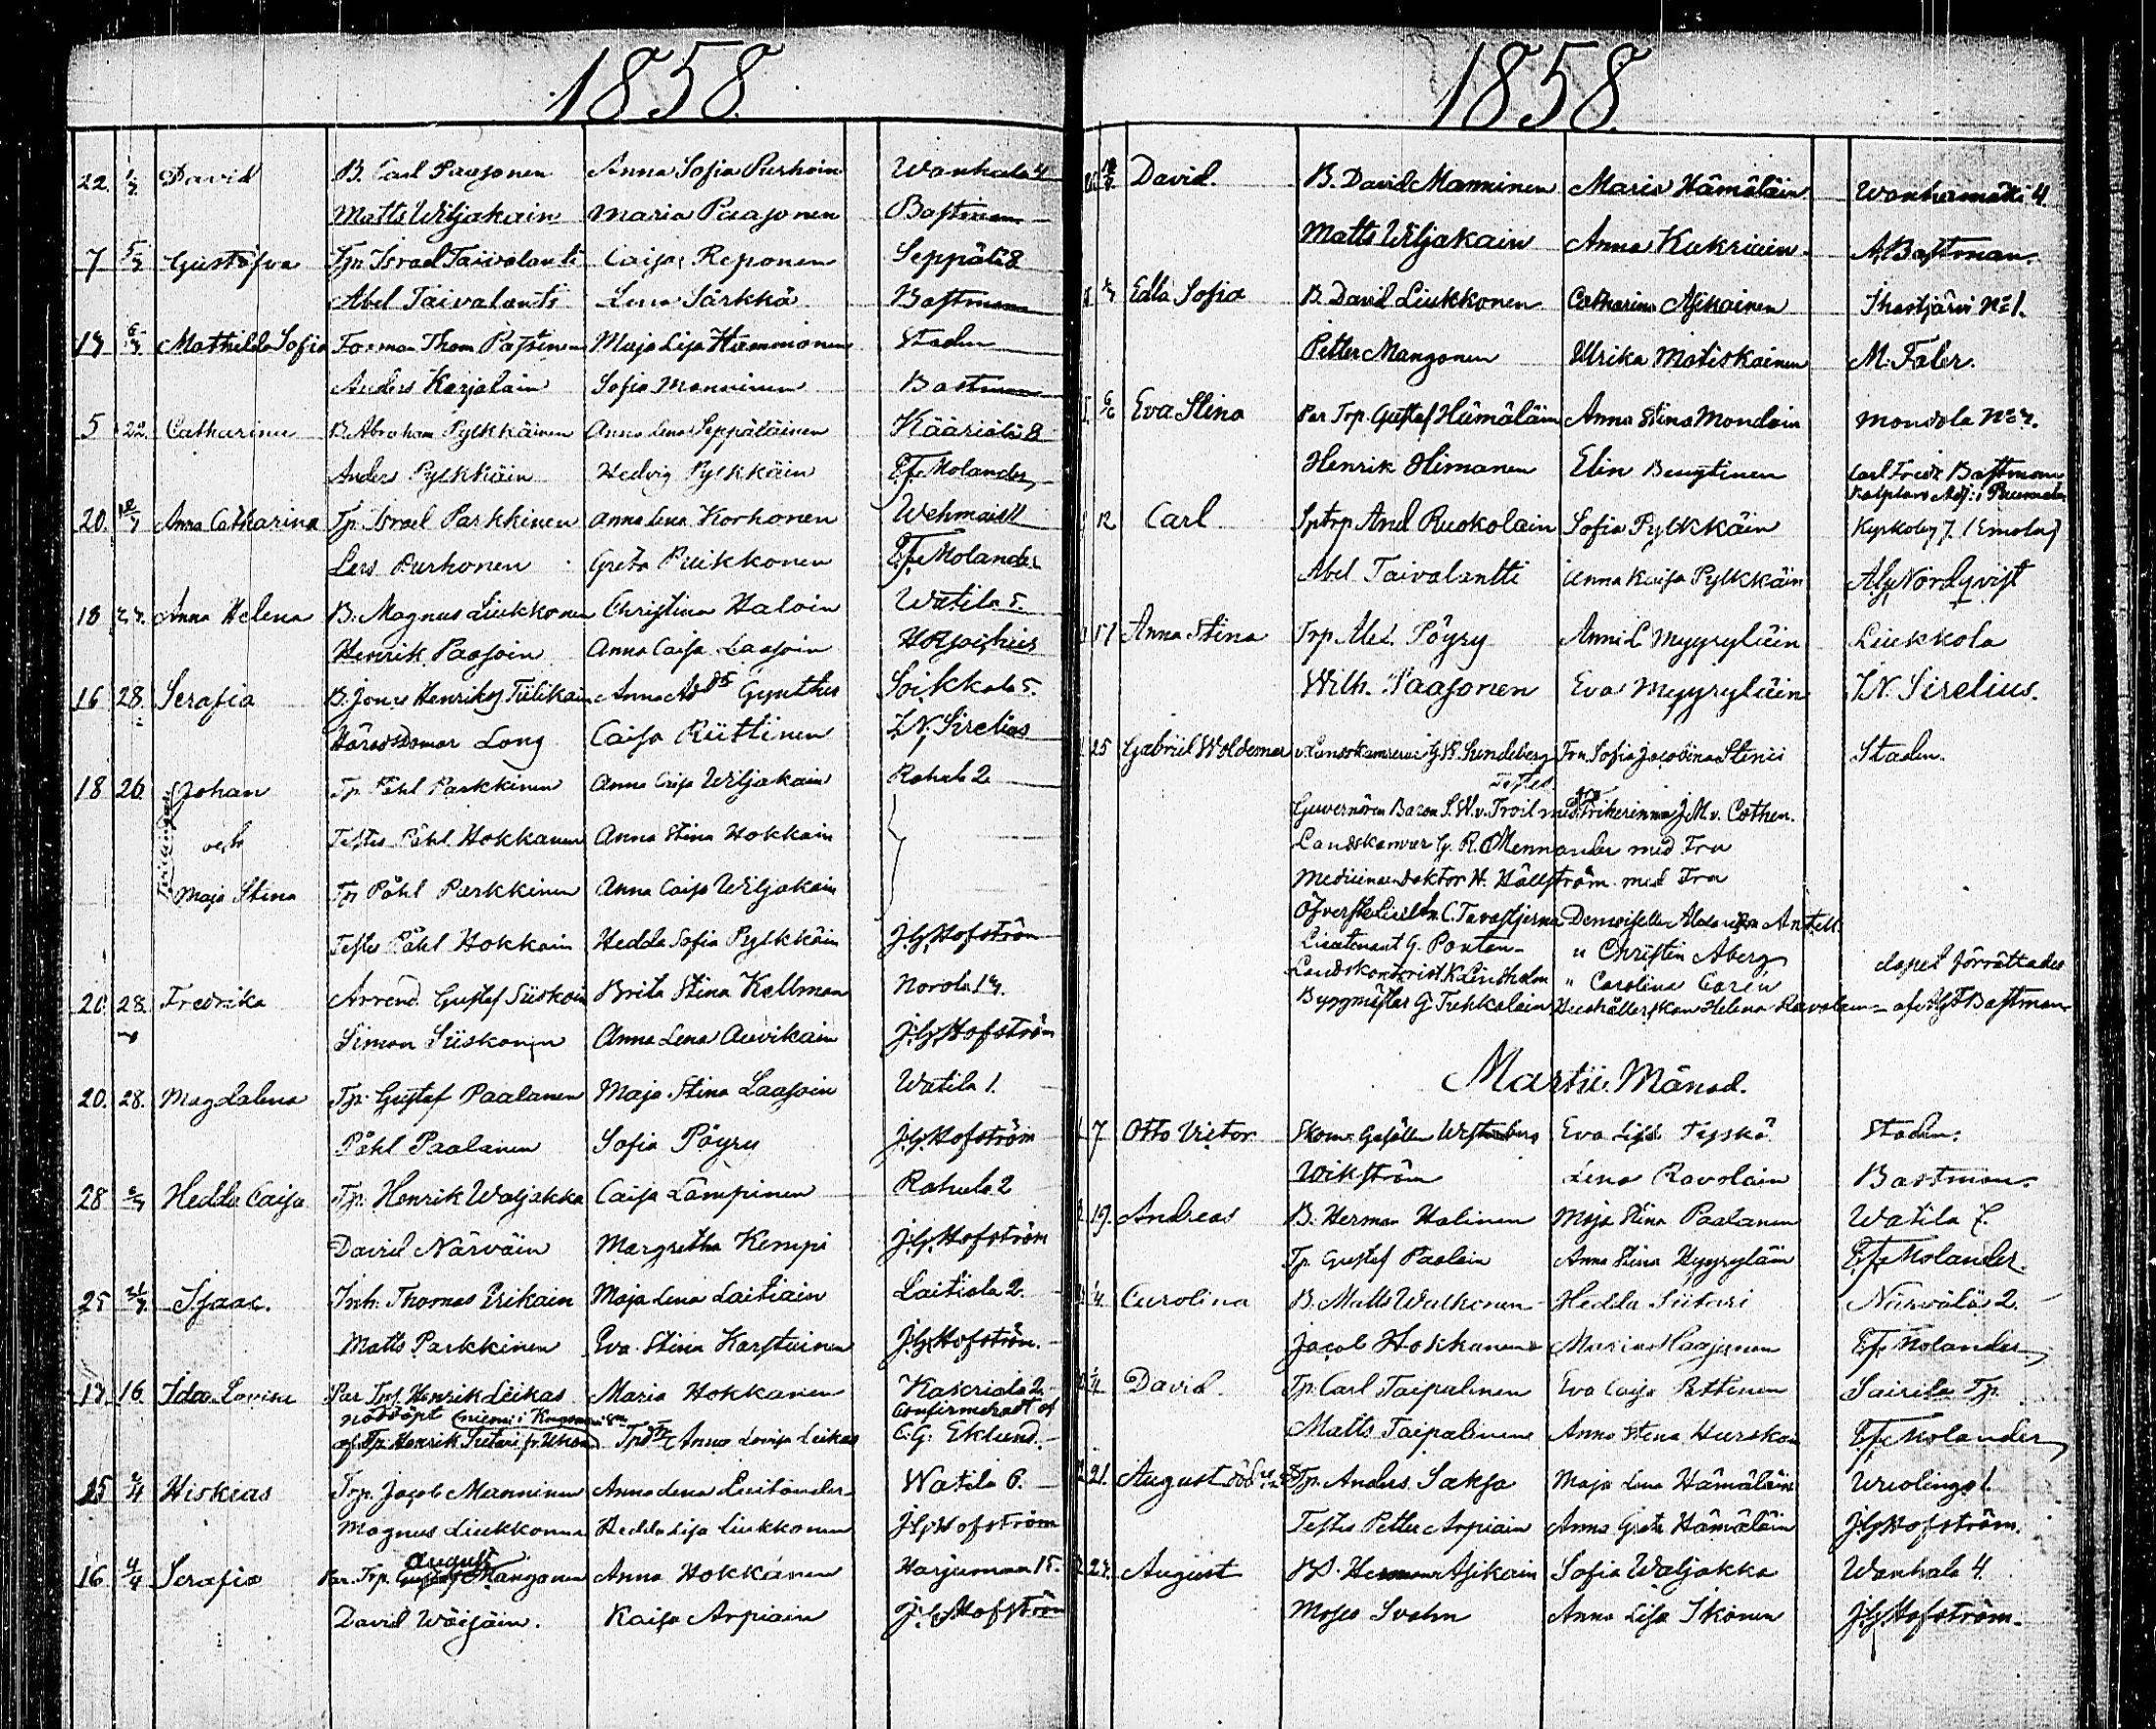 1858.
22. 1/3 David B. Carl Paajonen Anna Sofia Purhoin Wanhala 4
Matts Wiljakain Maria Paajonen Bastman
7 5/3 Gustafva Tp. Israel Taivalanti Caisa Reponen Seppälä 8
Abel Taivalanti Lena Särkkä Bastman
Mathilda Sofia Thom Pätsinen Maja Lisa Staden
Anders Karjalain Sofia Manninen Bastman
5 22. Catharina B. Abraham Pylkkäinen Anna Lena Seppäläinen Kääriälä 8
Anders Pylkkäin Hedvig Pylkkäin E.f. Molander
20. Anna Catharina Tp. Israel Parkkinen Anna Lena Korhonen Wehmais 11
Lars Purhonen Greta Puikkonen E.f. Molander
18 Anna Helena B. Magnus Liukkonen Christina Haloin Watila 5.
Henrik Paasoin Anna Caisa Laasoin
16 28. Serafia B. Jonas Henriks. Tiilikain Anna Gynther Soikkala 5.
Häradsdomar Long Caisa Riittinen Z.N. Sirelius
18 26. Johan Tp. Påhl Parkkinen Anna Caisa Wiljakain Rahula 2
och Testes Påhl Hokkanen Anna Stina Hokkain
Tvillingar
Maja Stina Tp. Påhl Parkkinen Anna Caisa Wiljakain
Testes Påhl Hokkain Hedda Sofia Pylkkäin J.G. Hofström
20 28. Fredrika Arrend. Gustaf Siiskoin Brita Stina Kellman Norola 13.
Simon Siiskonen Anna Lena Auvikain J.G. Hofström
20. 28. Magdalena Tp. Gustaf Paalanen Maja Stina Laasoin Watila 1.
Påhl Paalanen Sofia Pöyry J.G. Hofström
28 Hedda Caisa Tp. Henrik Waljakka Caisa Lämpinen Rahula 2
David Närväin Margretha Kempi J.G. Hofström
25 31/3 Isaac. Inh. Thomas Urikain Maja Lena Laitiain Laitiala 2.
Matts Parkkinen Eva Stina Karstuinen J.G. Hofström.
16 Ida Lovisa Par Tp. Henrik Leikas Maria Hokkanen
nöddöpt Confirmeradt af
af Tp. Henrik Siitari Anna Lovisa Leikas C.G. Eklund.
25 Hiskias Trp. Jacob Manninen Anna Lena Watila 6.
Magnus Liukkonen Hedda Lisa Liukkonen J.G. Hofström
August
16 4/4 Serafia Par. Trp. Gustaf Mangonen Anna Hokkanen Harjumaa 15.
David Wäisäin. Kaisa Arpiain J.G. Hofström
1858.
David. B. David Manninen Maria Hämäläin Wanhamäki 4
Matts Wiljakain Anna Kukriain A. Bastman.
Edla Sofia B. David Liukkonen Catharina Asikainen Ihastjärvi No 1.
Petter Mangonen Ulrika Matiskainen M. Faler.
Eva Stina Par Trp. Gustaf Hämäläin Anna Stina Mondoin Mondola No 3.
Henrik Himanen Elin Bengtinen Carl Fredr. Bastman
12 Carl Sptrp. And Ruokolain Sofia Pylkkäin Kyrkoby 7. (Emola)
Abel Taivalantti Anna Kaisa Pylkkäin Nordqvist
Anna Stina Trp. Alex. Pöyry Anna L Myyryläin Liukkola
Wilh. Paasonen Eva Myyryläin Z.N. Sirelius.
25 Gabriel Woldemar v. Landskamrerar G.W. Sundeberg Fru Sofia Jacobina Stenii Staden.
Testes
Guvernören Baron S.W. v. Troil med Friherinna J.M. v. Cothen.
Landskamrer G. R. Mennander med Fru
Medicinæ doktor H. Hällström med Fru
Öfverste Lieutn. C. Tavastjerna Demoiselle Antell
Lieutenant G. Ponten " Christin Åberg dopet förrättades
Landskontorist K. Lindholm " Carolina Corén
Byggmästar G. Tukkolain Hushållerskan Helena Ravolain af A.F. Bastman
Martii Månad.
7 Otto Victor Skom. Gesällen Westerberg Eva Lisa Tyskä Staden.
Wikström Lena Ravolain Bastman.
19. Andreas B. Herman Halinen Maja Stina Paalanen Watila 7.
Tp. Gustaf Paalain Anna Stina Myyryläin E.f. Molander.
Carolina B. Matts Walkonen Hedda Siitari Närvälä 2.
Jacob Hokkanen Maria Haajanen E.f. Molander
David. Tp. Carl Taipalinen Eva Caisa Pettinen Sairila Tp.
Matts Taipalinen Anna Stina Hurskain E.f. Molander
21. August Tp. Anders Saksa Maja Lena Hämäläin
Testes Petter Arpiain Anna Greta Hämäläin J.G. Hofström.
August Herman Asikain Sofia Waljakka Wanhala 4.
Moses Svahn Anna Lisa Ikonen J.G. Hofström.